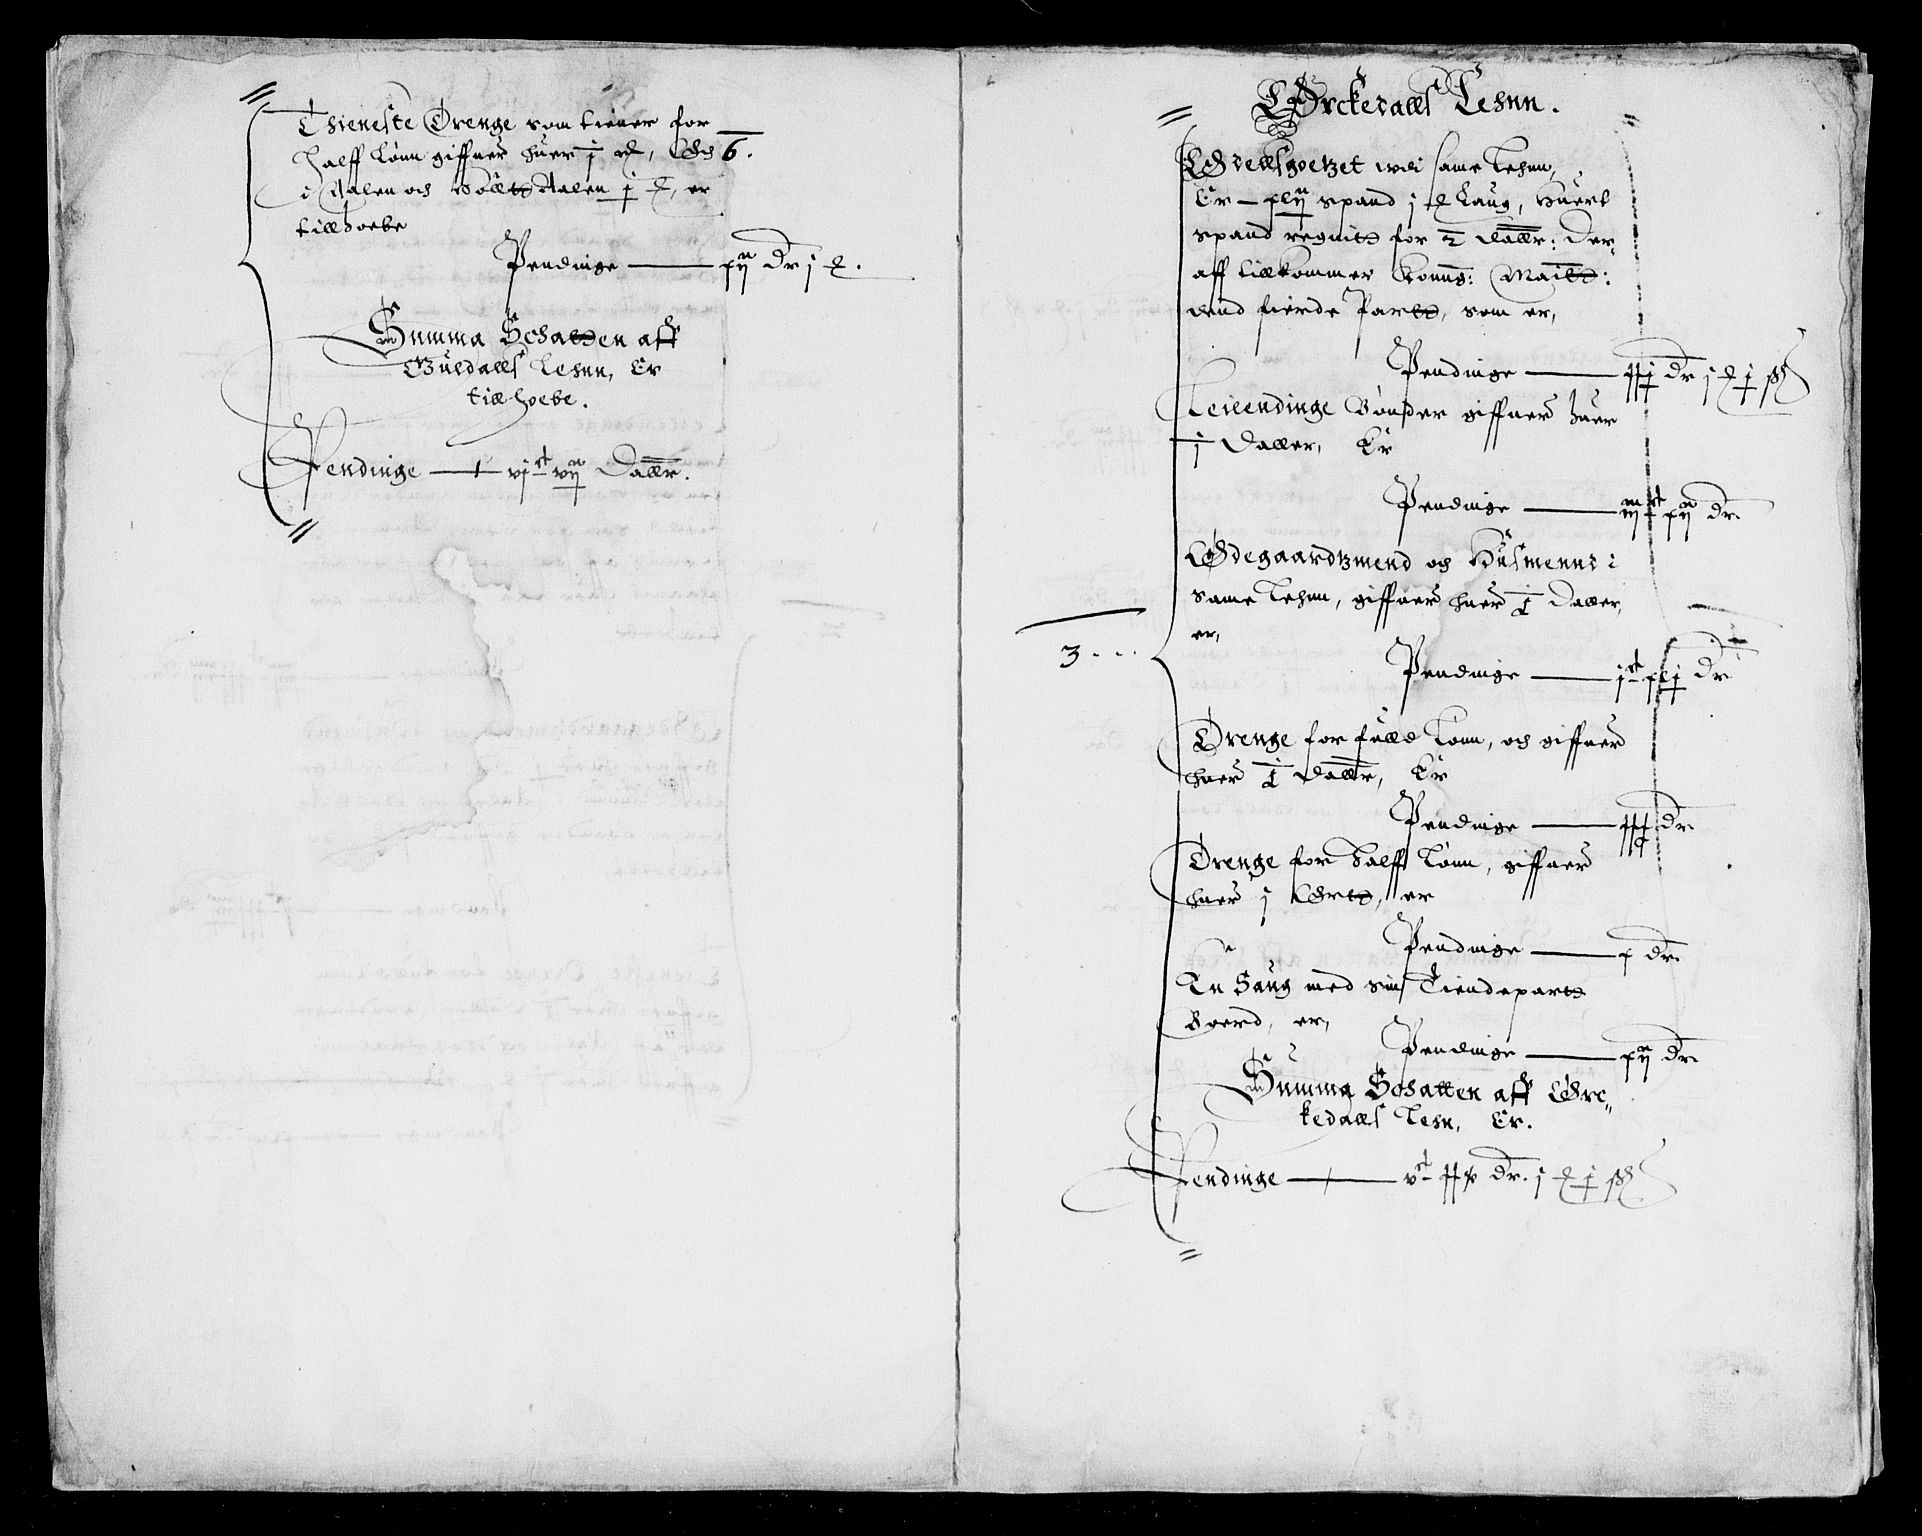 Thieneste Drenge som tiener for
halff Lønn giffuer huer j ↄ, Och 6.
i Aalen och Høltedalen j ↄ, er
tillhoebe
Pendinge — xij Dr j ↄ.
Summa Schatten aff
Guldalls Lehnn, Er
till hoebe.
Pendinge — vjᶜ vij Dallr.
Ørckedalls Lehnn.
Odellsgodtzet udi same Lehnn,
Er — xlij spand j ↄ Laug, Huert
spand regnits for 2 Dallr: Der-
aff tillkommer Konng: Maitt:
dend fierde Partt, som er,
Pendinge — xxj Dr j ↄ j ß
Leilendinge Bønder giffuer huer
j Daller, Er
Pendinge — iijᶜ xij Dr.
Ødegaardtzmend och Husmennd i
same Lehnn, giffuer huer ½ Daller,
er,
Pendinge — jᶜ xlj Dr
Drenge for fulld Lønn, och giffuer
huer ½ Dallr, Er
Pendinge — xxx Dr
Drenge for halff Lønn, giffuer
huer j Ortt, er
Pendinge — x Dr.
3
En Saug med sin Tiendepartt
Boerd, er,
Pendinge — xij Dr.
Summa Schatten aff Ørc-
kedalls Lehn, Er.
Pendinge — vᶜ xxv Dr. j ↄ j ß